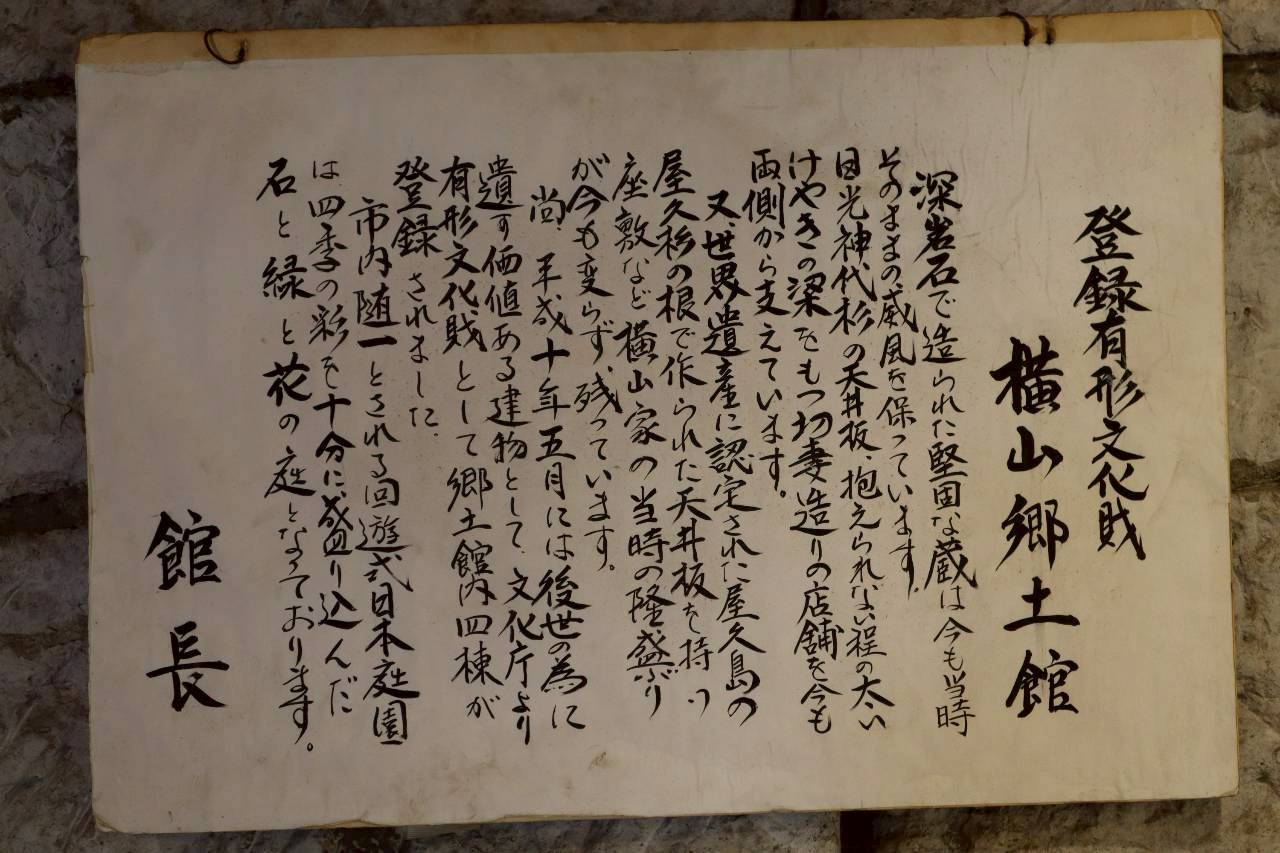 登録有形文化財
横山郷土館
深岩石で造られた堅固な蔵は今も当時
そのままの威風を保っています。
日光神代杉の天井板、抱えられない程の太い
けやきの梁をもつ切妻造りの店舗を今も
両側から支えています。
又、世界遺産に認定された屋久島の
屋久杉の根で作られた天井板を持つ
座敷など横山家の当時の隆盛ぶり
が今も変らず、残っています。
尚、平成十年五月には後世の為に
遺す価値ある建物として、文化庁より
有形文化財として郷土館内四棟が
登録されました。
市内随一とされる回遊式日本庭園
は四季の彩を十分に、盛り込んだ
石と緑と花の庭となっております。
館長